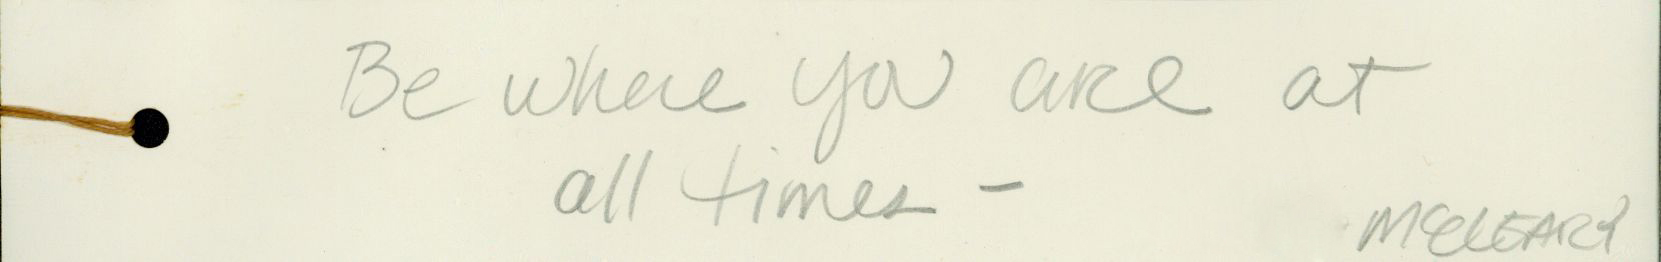 Be where you are at
all times -
McCLEARY